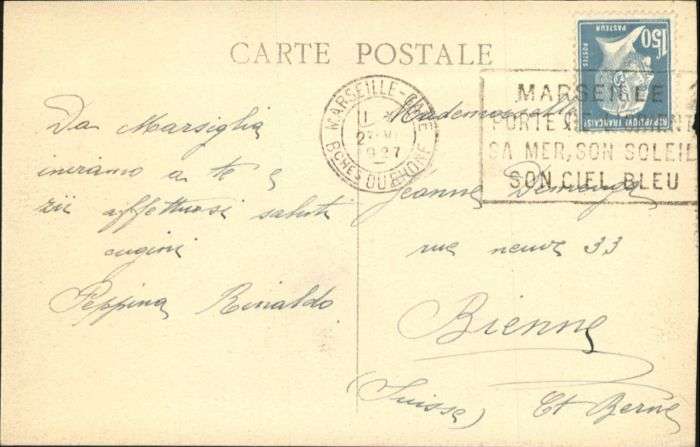 CARTE POSTALE
1F50
PASTEUR
POSTES
REPUBLIQUE FRANÇAISE
MARSEILLE-GARE
1927
BCHES DU RHONE
MARSEILLE
PORTE DE
SA MER, SON SOLEIL
SON CIEL BLEU
Da Marsiglia
inviamo a te e
zii affettuosi saluti
cugini
Peppina Rinaldo
Mademoiselle
Jeanne
rue neuve 33
Bienne
(Suisse) Ct Berne